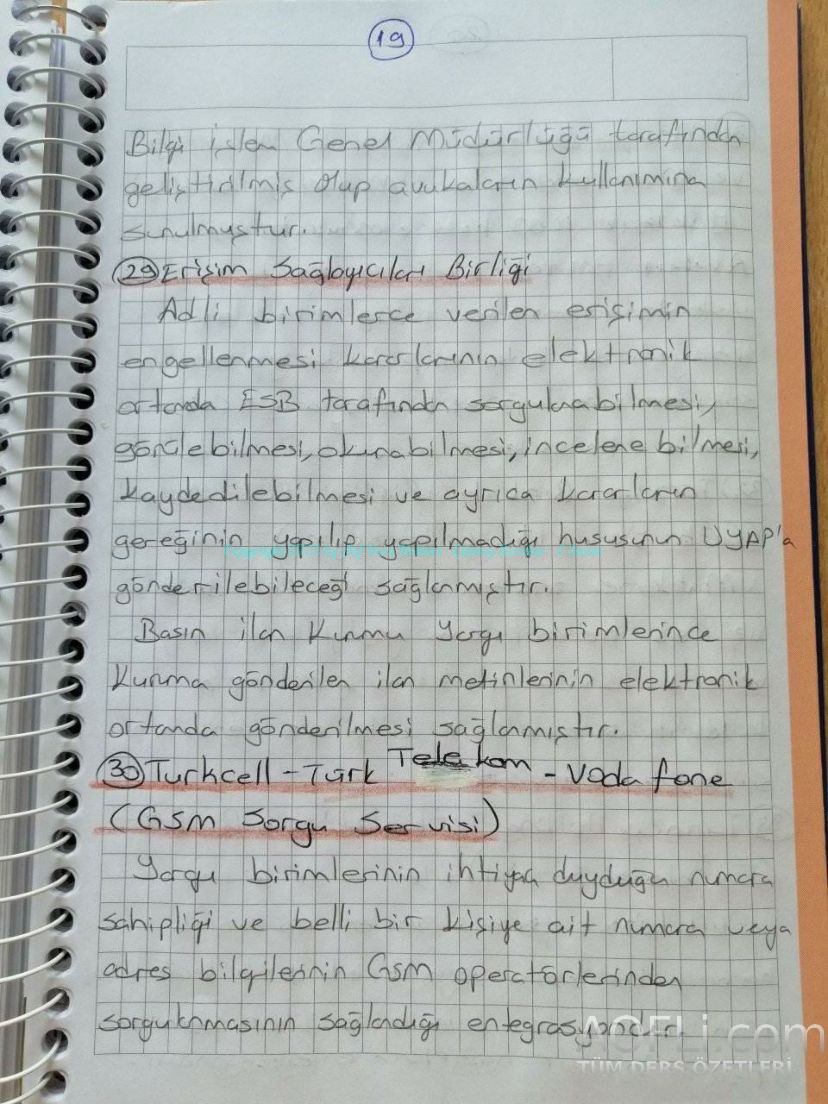 19
Bilgi işlem Genel Müdürlüğü tarafından
geliştirilmiş olup avukatların kullanımına
sunulmuştur.
29 Erişim Sağlayıcıları Birliği
Adli birimlerce verilen erişimin
engellenmesi kararlarının elektronik
ortamda ESB tarafından sorgulanabilmesi,
görülebilmesi, okunabilmesi, incelenebilmesi,
kaydedilebilmesi ve ayrıca kararların
gereğinin yapılıp yapılmadığı hususunun UYAP'a
gönderilebileceği sağlanmıştır.
Basın ilan Kurumu yargı birimlerince
kuruma gönderilen ilan metinlerinin elektronik
ortamda gönderilmesi sağlanmıştır.
30 Turkcell - Türk Telekom - Vodafone
(GSM Sorgu Servisi)
Yargı birimlerinin ihtiyaç duyduğu numara
sahipliği ve belli bir kişiye ait numara veya
adres bilgilerinin GSM operatörlerinden
sorgulanmasının sağlandığı entegrasyondur.
AOFLi.com
TÜM DERS ÖZETLERİ